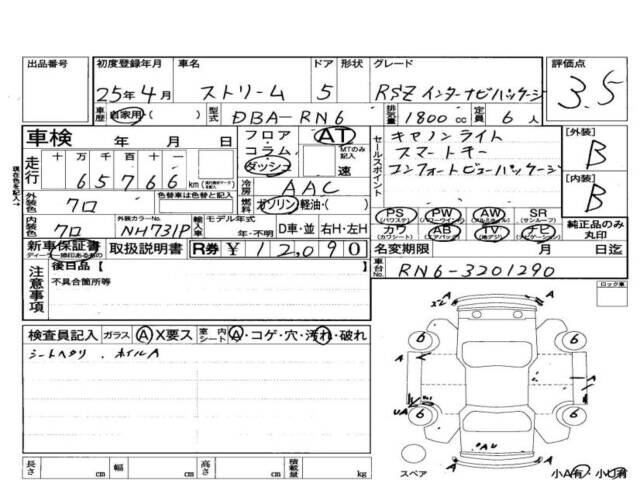 出品番号 初度登録年月 車名 ドア 形状 グレード 評価点
25年4月 ストリーム 5 RSZ インターナビパッケージ 3.5
車歴 自家用・( ) 型式 DBA-RN6 排気量 1800cc 定員 6人
車検 年 月 日 フロア・コラム・ダッシュ AT MTのみ記入 速
セールスポイント キセノンライト
スマートキー
コンフォートビューパッケージ
[外装] B
[内装] B
現在色を記入→
走行 十 万 千 百 十 一
65766 km
冷房 AAC
燃料 ガソリン・軽油・( )
外装色 クロ 色替車は色替と記入
内装色 クロ 外装カラーNo. NH731P 輸入車 モデル年式 年・不明 D車・並 右H・左H
PS (パワステ) PW (パワーウインド) AW (アルミホイル) SR (サンルーフ)
カワ (カワシート) AB (エアバック) TV (地デジ) ナビ 純正品のみ丸印
新車保証書 取扱説明書 R券 ¥12,090
名変期限 月 日迄
車台No. RN6-3201290
注意事項 後日品 [ ]
不具合箇所等
ロック車
検査員記入 ガラス A X要ス 室内シート A・コゲ・穴・汚れ・破れ
シートヘタリ . ホイルA
A
A
XZ
6
6
A
A
UA
6
6
AU
スペア
小A有・小U有
長さ cm 幅 cm 高さ cm 積載量 kg